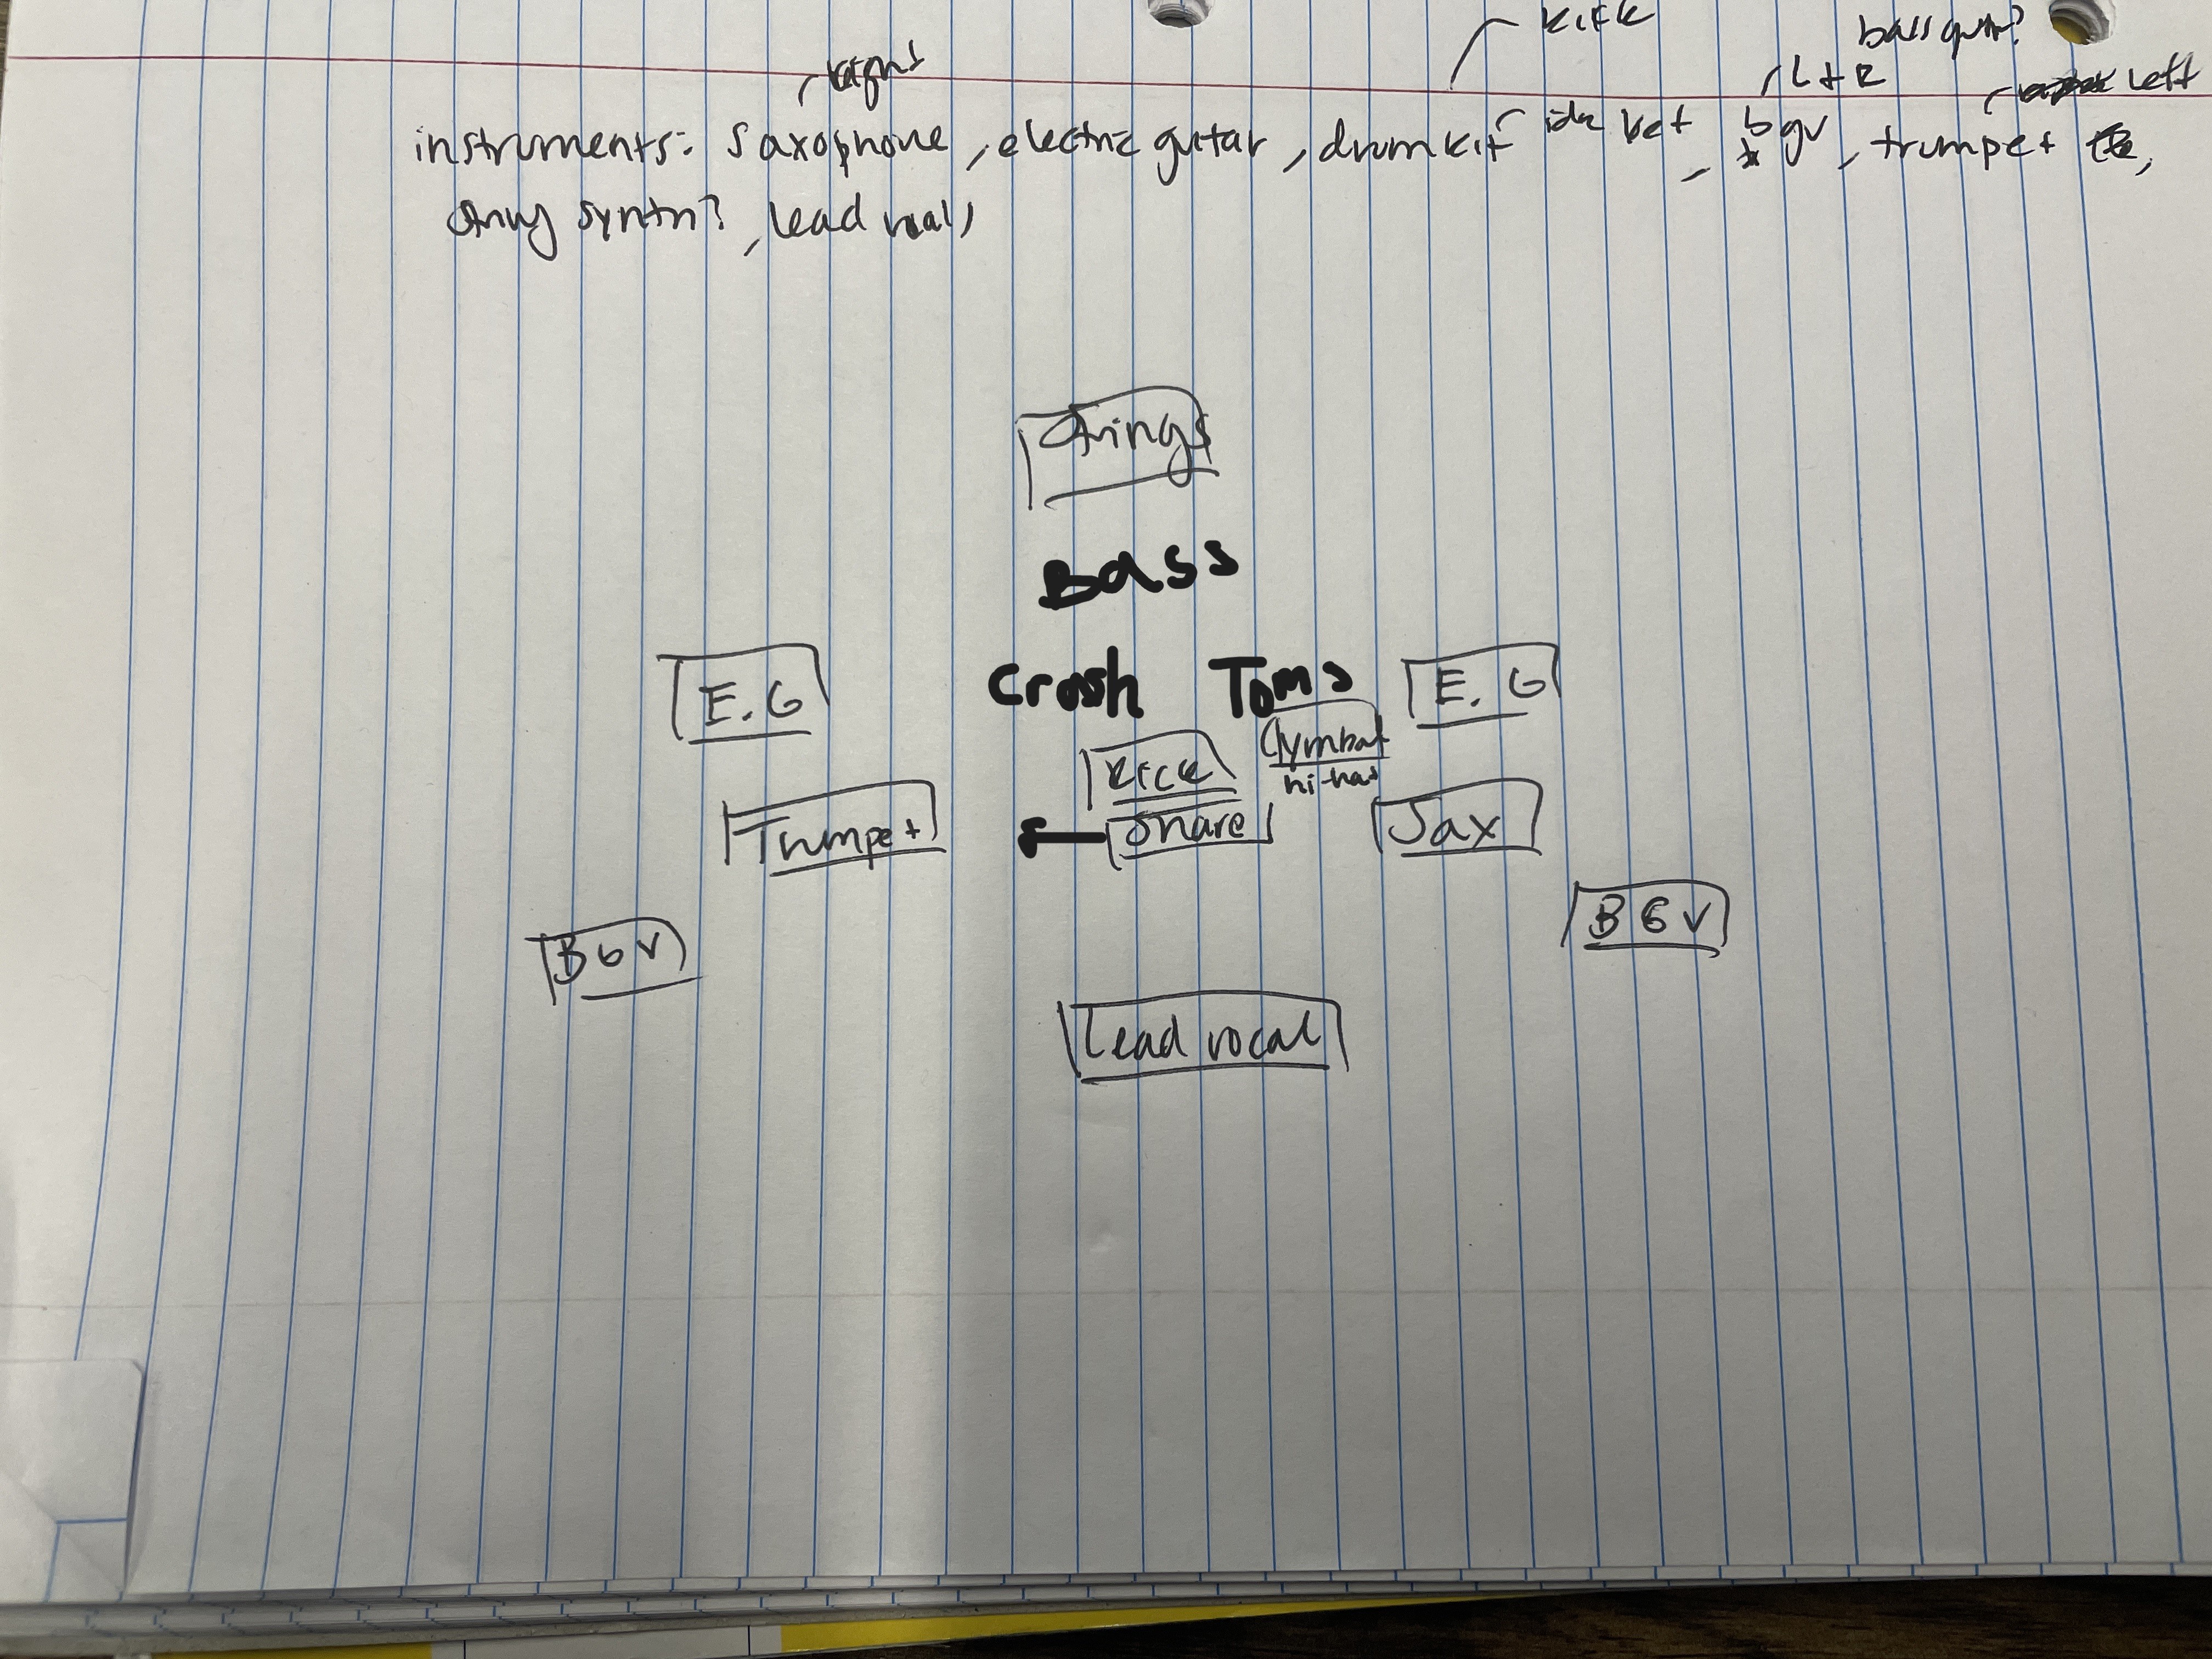 kick
bass guitar?
right
L + R
Left
instruments: saxophone, electric guitar, drum kit idk yet, bgv, trumpet,
string synth?, lead vocal,
Strings
Bass
E.G
Crash Toms
E.G
Cymbal
hi-hat
Kick
Trumpet
Snare
Sax
BGV
BGV
Lead vocal